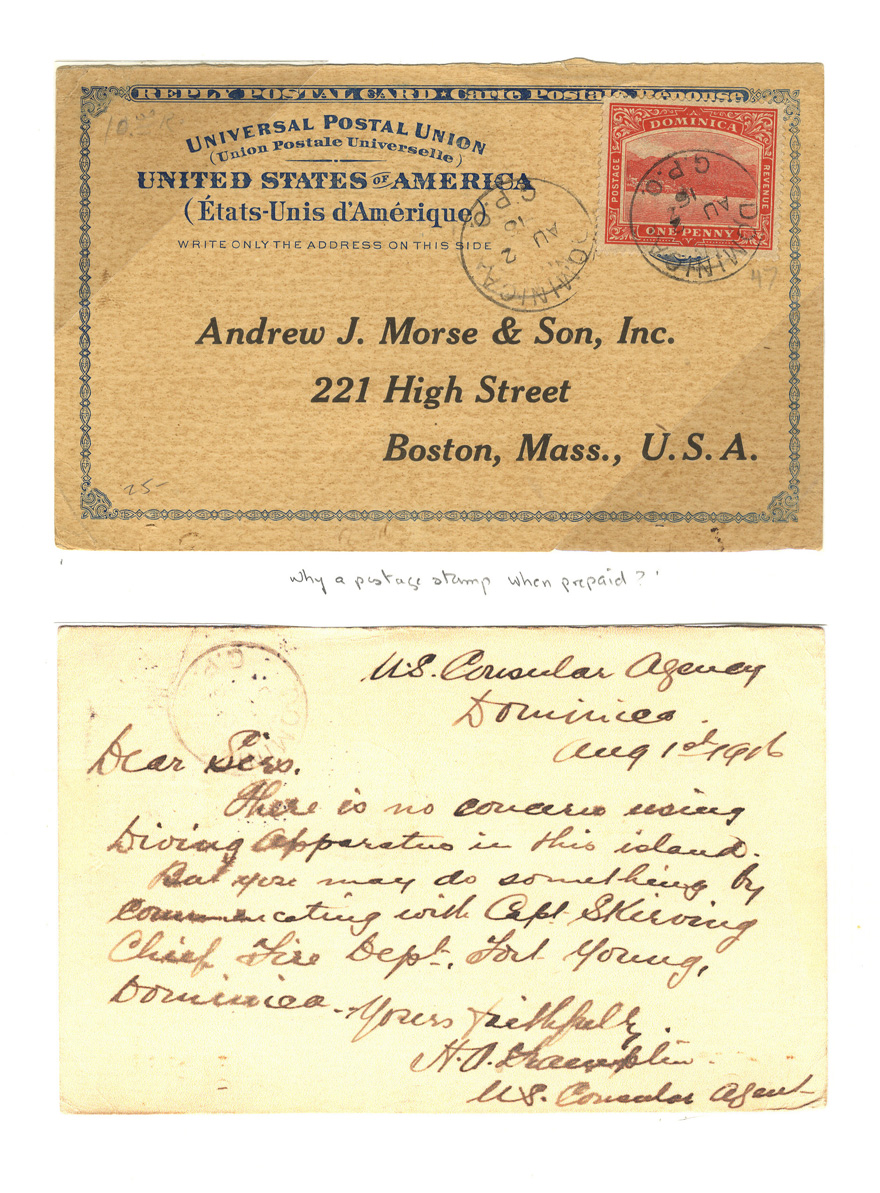 10.
REPLY POSTAL CARD ★ Carte Postale Réponse
UNIVERSAL POSTAL UNION
(Union Postale Universelle)
UNITED STATES OF AMERICA
(États-Unis d'Amérique)
WRITE ONLY THE ADDRESS ON THIS SIDE
DOMINICA
POSTAGE
REVENUE
ONE PENNY
DOMINICA
G.P.O.
AU 2
16
DOMINICA
G.P.O.
AU
16
47
Andrew J. Morse & Son, Inc.
221 High Street
Boston, Mass., U.S.A.
25-
why a postage stamp when prepaid?
U.S. Consular Agency
Dominica.
Aug 1st 1916
Dear Sirs.
There is no concern using
Diving Apparatus in this island.
But you may do something by
communicating with Capt. Skirving
Chief Fire Dept. Fort Young,
Dominica.
Yours faithfully.
H.A.
U.S. Consular Agent